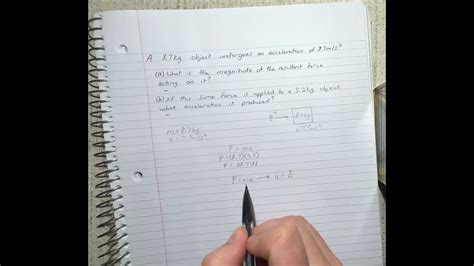 A 8.7kg object undergoes an acceleration of 3.3m/s²
(a) What is the magnitude of the resultant force
acting on it?
(b) If this same force is applied to a 5.2kg object,
what acceleration is produced?
m = 8.7kg
a = 3.3m/s²
F = ma
F = (8.7)(3.3)
F = 28.71N
F = ma → a = F/m